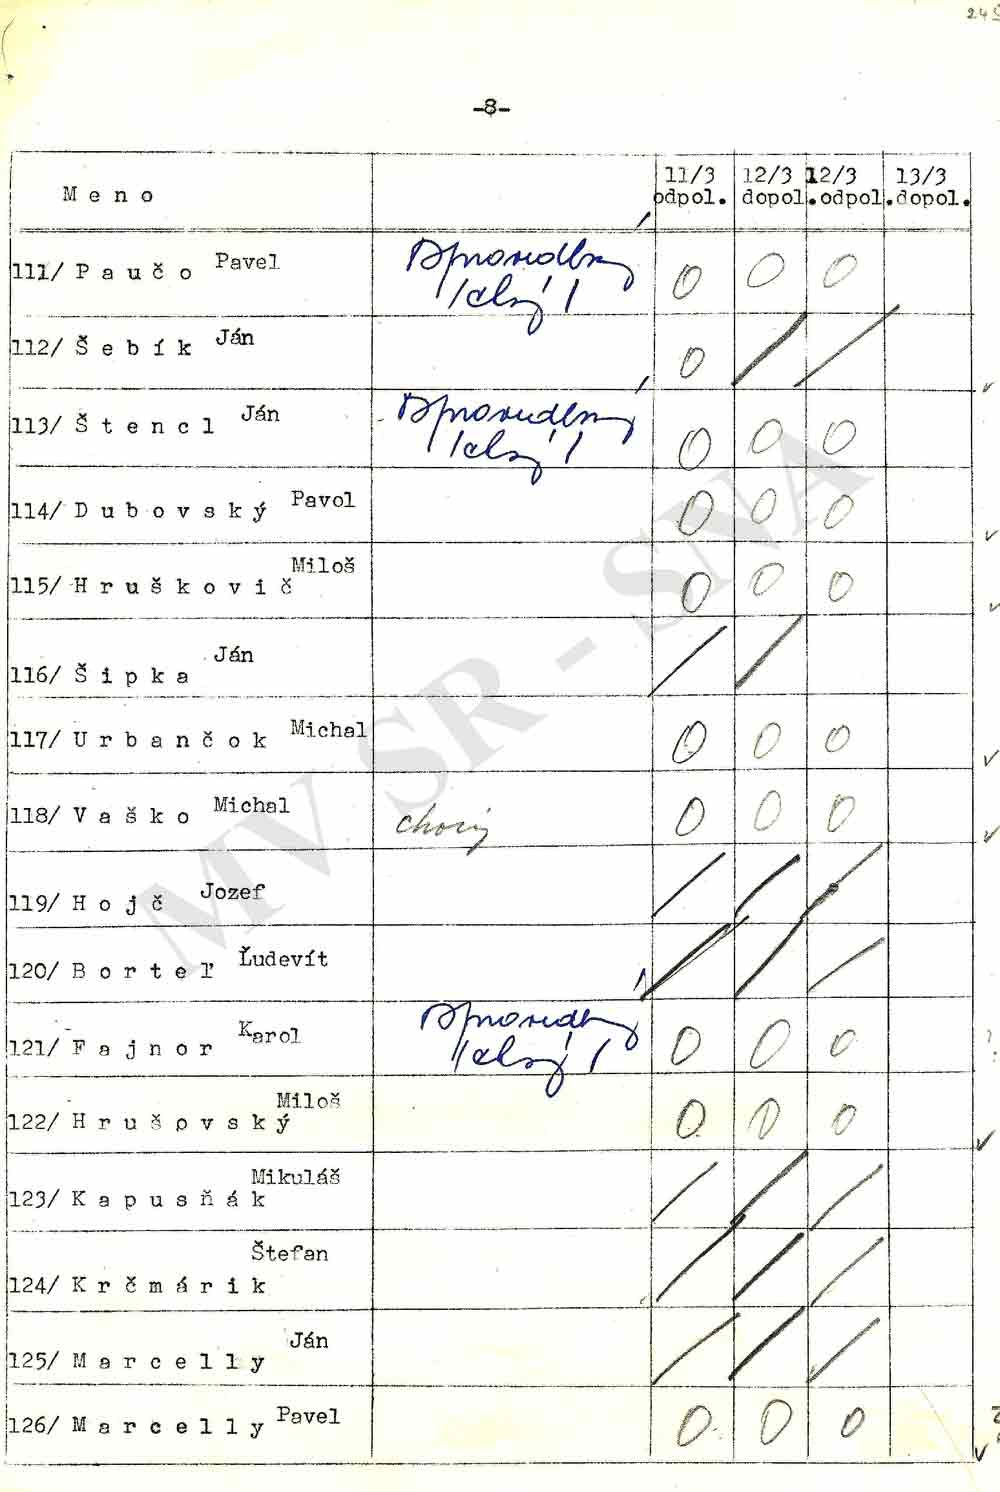 -8-
Meno 11/3 odpol. 12/3 dopol. 12/3 odpol. 13/3 dopol.
111/ Paučo Pavel 0 0 0
112/ Šebík Ján 0 / /
113/ Štencl Ján 0 0 0
114/ Dubovský Pavol 0 0 0
115/ Hruškovič Miloš 0 0 0
116/ Šipka Ján / /
117/ Urbančok Michal 0 0 0
118/ Vaško Michal chorý 0 0 0
119/ Hojč Jozef / / /
120/ Borteľ Ľudevít / / /
121/ Fajnor Karol 0 0 0
122/ Hrušovský Miloš 0 0 0
123/ Kapusňák Mikuláš / / /
124/ Krčmárik Štefan / / /
125/ Marcelly Ján / / /
126/ Marcelly Pavel 0 0 0
MV SR - SNA